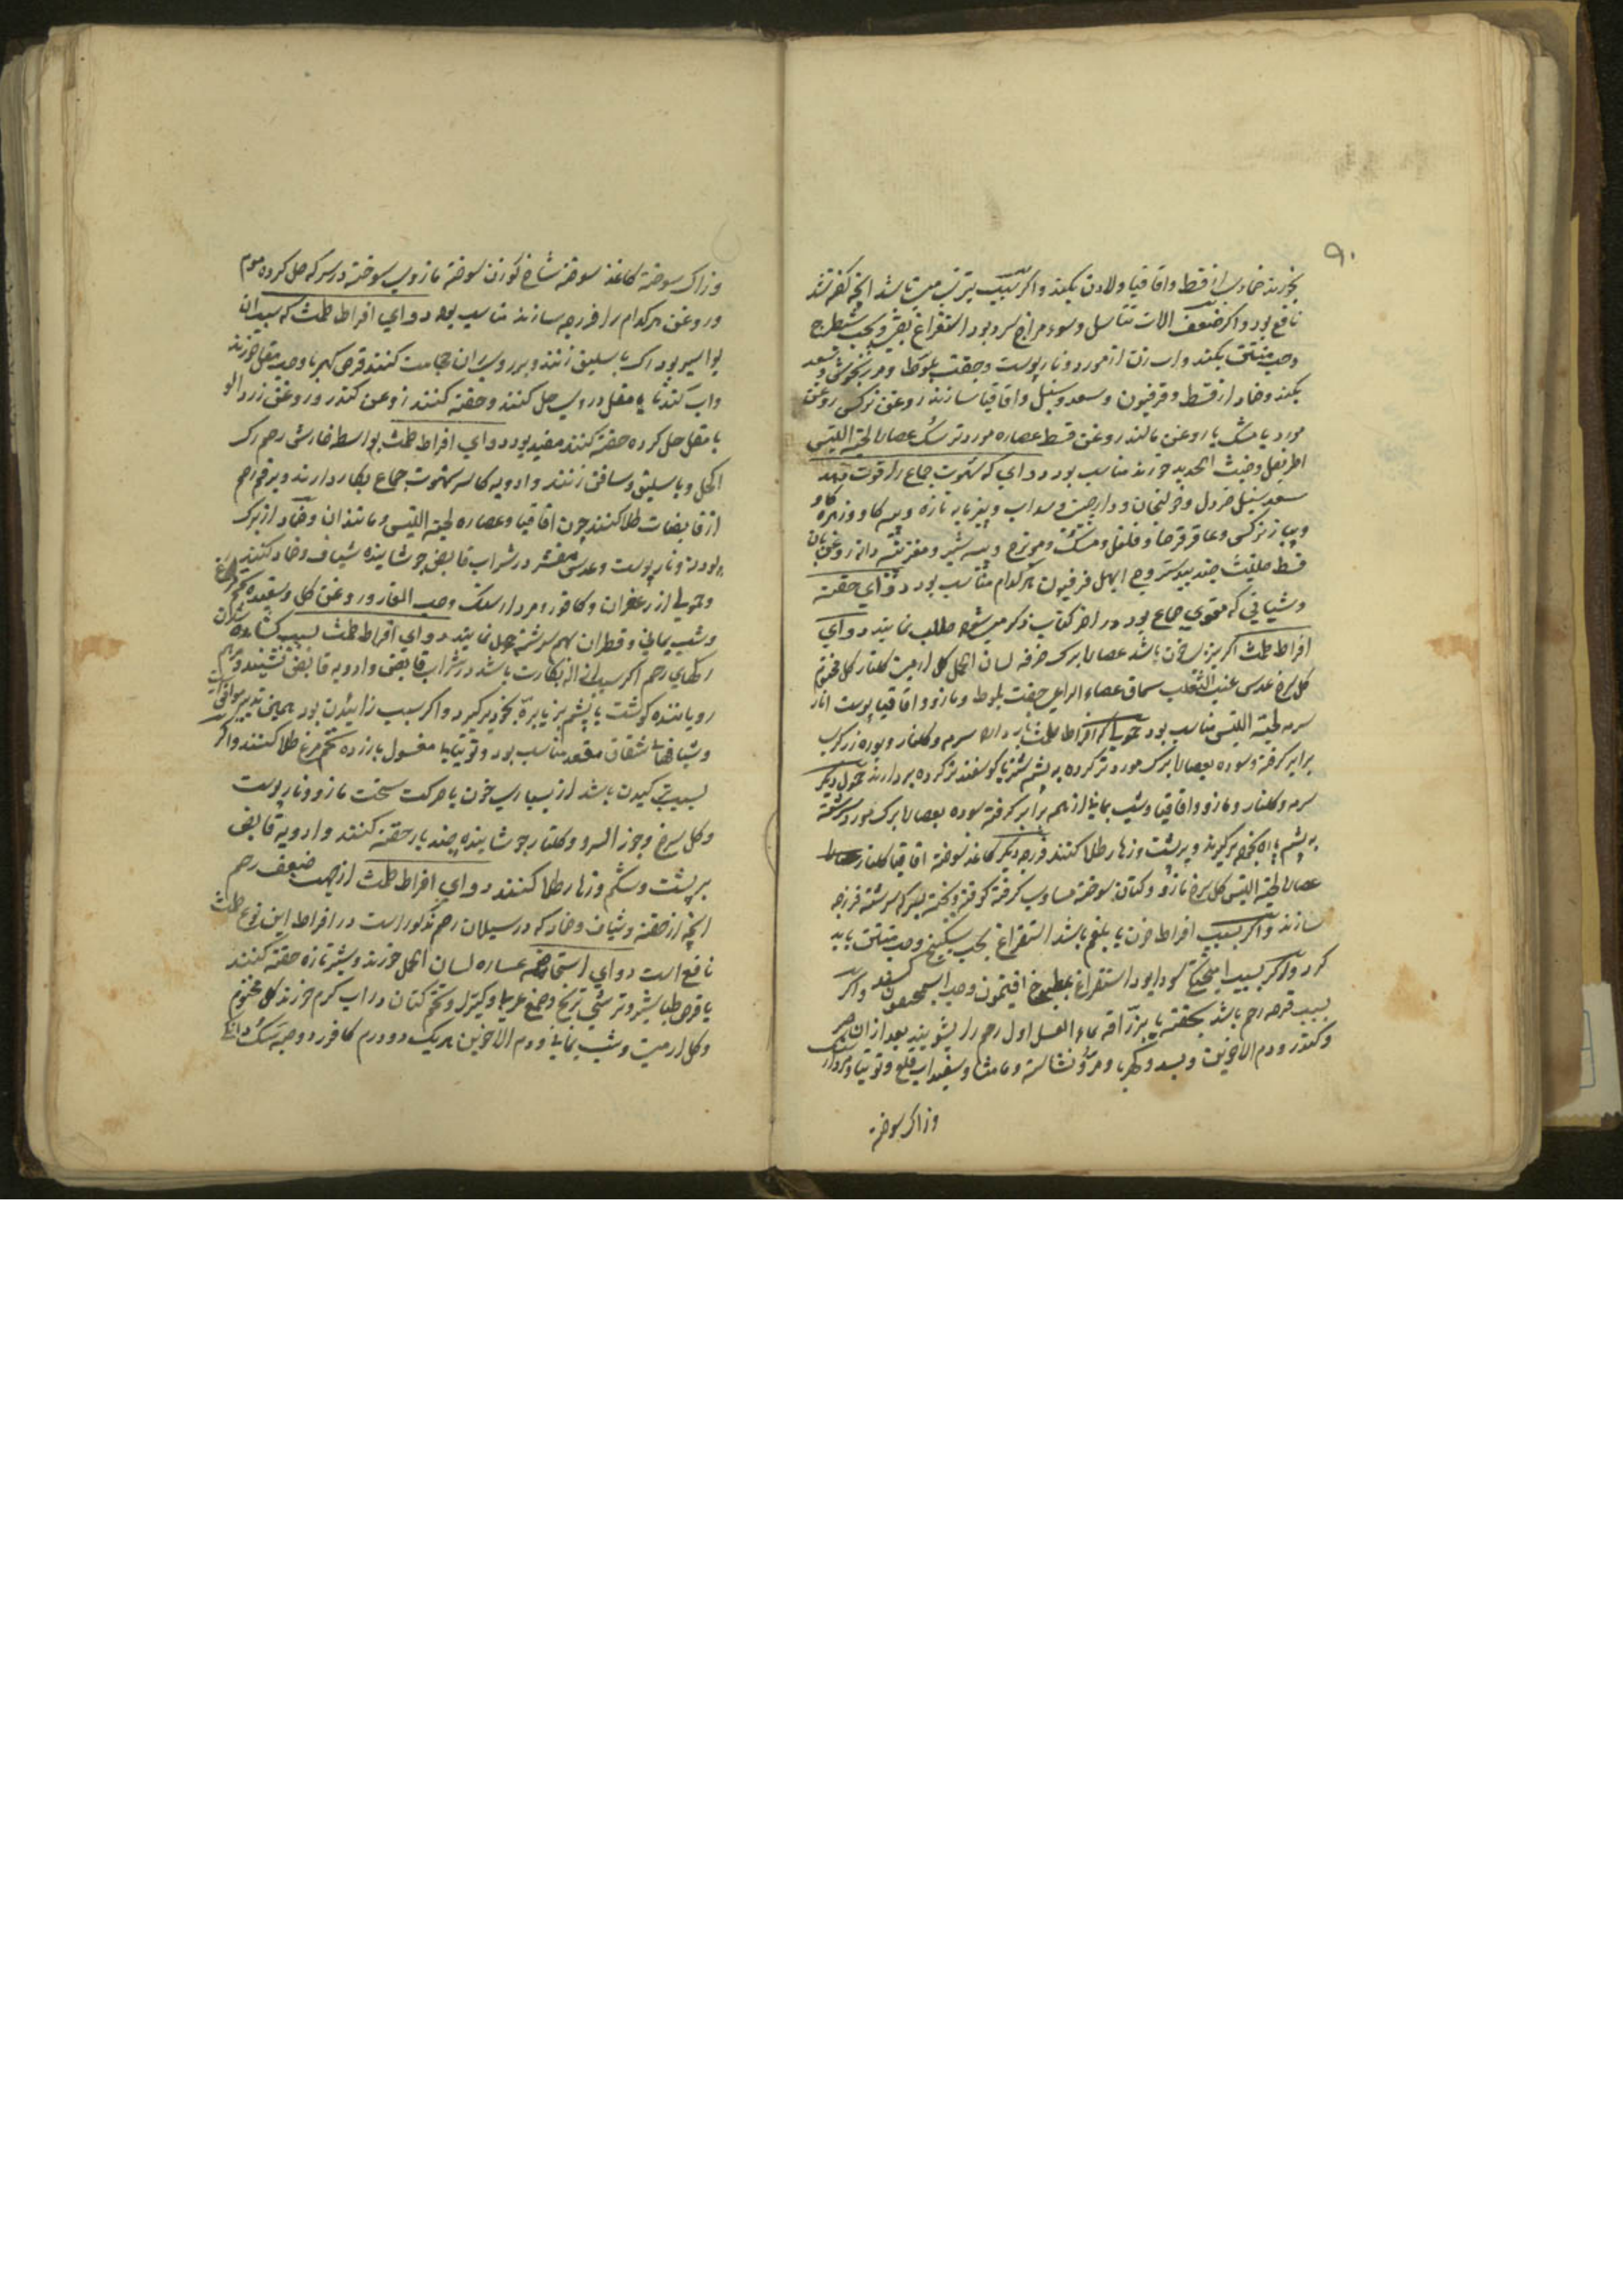 ۹۰
بخورند ضماد سازند از قسط واقاقیا ولادن بکند واکر بسبب تیرتیب میباشد انچه کفته شد
نافع بود واکر ضعف الات تناسل وسوء مزاج سرد بود استفراغ بقی وبحب شیطرج
وحب منتن بکند واب زن از مورد ونارپوست وجفت بلوط ومرزنجوش وسعد
بکند وضماد از قسط وفرفیون وسعد وسنبل واقاقیا سازند روغن نرکس روغن
مورد با مشک یا روغن بالند روغن قسط عصاره مورد تر سک عصاره لحیة التیس
اطریفل وخبث الحدید خورند مناسب بود دوای که شهوت جماع را قوت دهد
سعد سنبل خردل وخولنجان ودارچینی وسداب وپنیرمایه تازه وپیه کاو وزهره کاو
وپیاز نرکس وعاقرقرحا وفلفل ومشک ومویزج وپیه شیر ومغز پنبه دانه روغن بان
قسط حلتیت جندبیدستر وج ابهل فرفیون هرکدام مناسب بود دوای حقنه
وشیافی که مقوی جماع بود در اخر کتاب ذکر میشود طلب نمایند دوای
افراط طمث اکر بزیادتی خون باشد عصاره برک خرفه لسان الحمل کل ارمنی کلنار کل مختوم
کل سرخ عدس عنب الثعلب سماق عصاء الراعی جفت بلوط ومازو واقاقیا پوست انار
سرمه لحیة التیس مناسب بود حمولی که افراط طمث باز دارد سرمه وکلنار وبوره زرکری
برابر کرفته وسوده بعصاره برک مورد تر کرده به پشم شتر یا کوسفند تر کرده بردارند حمول دیکر
سرمه وکلنار ومازو واقاقیا وشب یمانی از همه برابر کرفته سوده بعصاره برک مورد سرشته
به پشم پاره بخود برکیرند وبر پشت وزهار طلا کنند فرزجه دیکر کاغذ سوخته اقاقیا کلنار
عصاره لحیة التیس کل سرخ مازو وکتان سوخته مساوی کرفته کوفته وبیخته بسرکه سرشته فرزجه
سازند واکر بسبب افراط خون با بلغم باشد استفراغ بحب سکبینج وحب منتن باید
کرد واکر بسبب امیختکی سودا بود استفراغ بمطبوخ افتیمون وحب اسطمخیقون کنند واکر
بسبب قرحه رحم باشد بحقنه یا بزراقه بماء العسل اول رحم را بشویند بعد ازان صبر
وکندر ودم الاخوین وبسد وکهربا ومرو نشاسته ومامیثا وسفیداب قلع وتوتیا ومردارسنک
وزاک سوخته
وزاک سوخته کاغذ سوخته شاخ کوزن سوخته مازوی سوخته در سرکه حل کرده موم
وروغن هرکدام را فرزجه سازند مناسب بود دوای افراط طمث که بسبب ان
بواسیر بود رک باسلیق زنند وبر روی ران حجامت کنند قرص کهربا وحب مقل خورند
واب کندنا یا مقل در وی حل کنند وحقنه کنند روغن کندر وروغن زردالو
با مقل حل کرده حقنه کنند مفید بود دوای افراط طمث بواسطه خارش رحم رک
اکحل وباسلیق وصافن زنند وادویه کاسر شهوت جماع بکار دارند وبر فم رحم
از قابضات طلا کنند چون اقاقیا وعصاره لحیة التیس ومانند ان وضماد از برک
بودنه ونارپوست وعدس مقشر در شراب قابض جوشانیده شیاف وضماد کنند
وحمولی از زعفران وکافور ومردارسنک وحب الغار وروغن کل وسفیده تخم مرغ
وشب یمانی وقطران بهم سرشته حمل نمایند دوای افراط طمث بسبب کشاده شدن
رکهای رحم اکر بسبب ازاله بکارت باشد در شراب قابض وادویه قابض نشینند ومرهم
رویاننده کوشت با پشم بز یا بره بخود برکیرد واکر سبب زائیدن بود همین تدبیر موافق است
وشیافها شقاق مقعد مناسب بود وتوتیا با مغسول با زرده تخم مرغ طلا کنند واکر
بسبب ترکیدن باشد از بسیاری خون یا حرکت سخت مازو ونارپوست
وکل سرخ وجوز السرو وکلنار جوشانیده چند بار حقنه کنند وادویه قابض
بر پشت وشکم وزهار طلا کنند دوای افراط طمث از جهت ضعف رحم
انچه از حقنه وشیاف وضماد که در سیلان رحم مذکور است در افراط این نوع طمث
نافع است دوای استحاضه عصاره لسان الحمل خورند وبشیر تازه حقنه کنند
یا قرص طباشیر وترشی ترنج وصمغ عربی وکتیرا وتخم کتان در اب کرم خورند کل مختوم
وکل ارمنی وشب یمانی ودم الاخوین هریک دو درم کافور دو حبه مشک دانکی